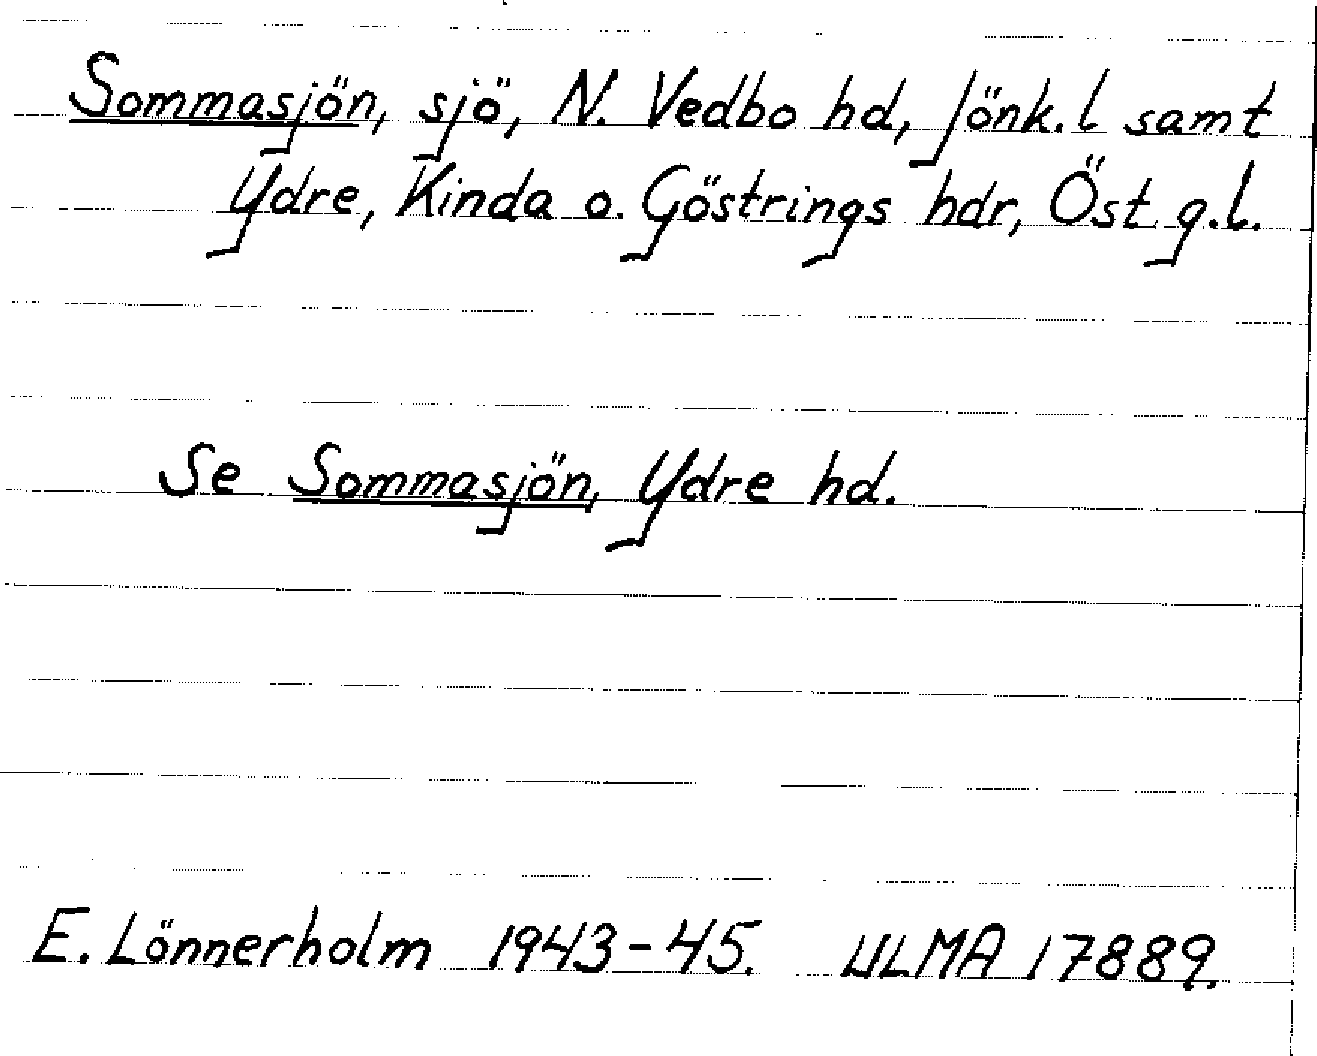 Sommasjön, sjö, N. Vedbo hd, Jönk. l samt
Ydre, Kinda o. Göstrings hdr, Östg.l.
Se Sommasjön, Ydre hd.
E. Lönnerholm 1943-45. ULMA 17889.